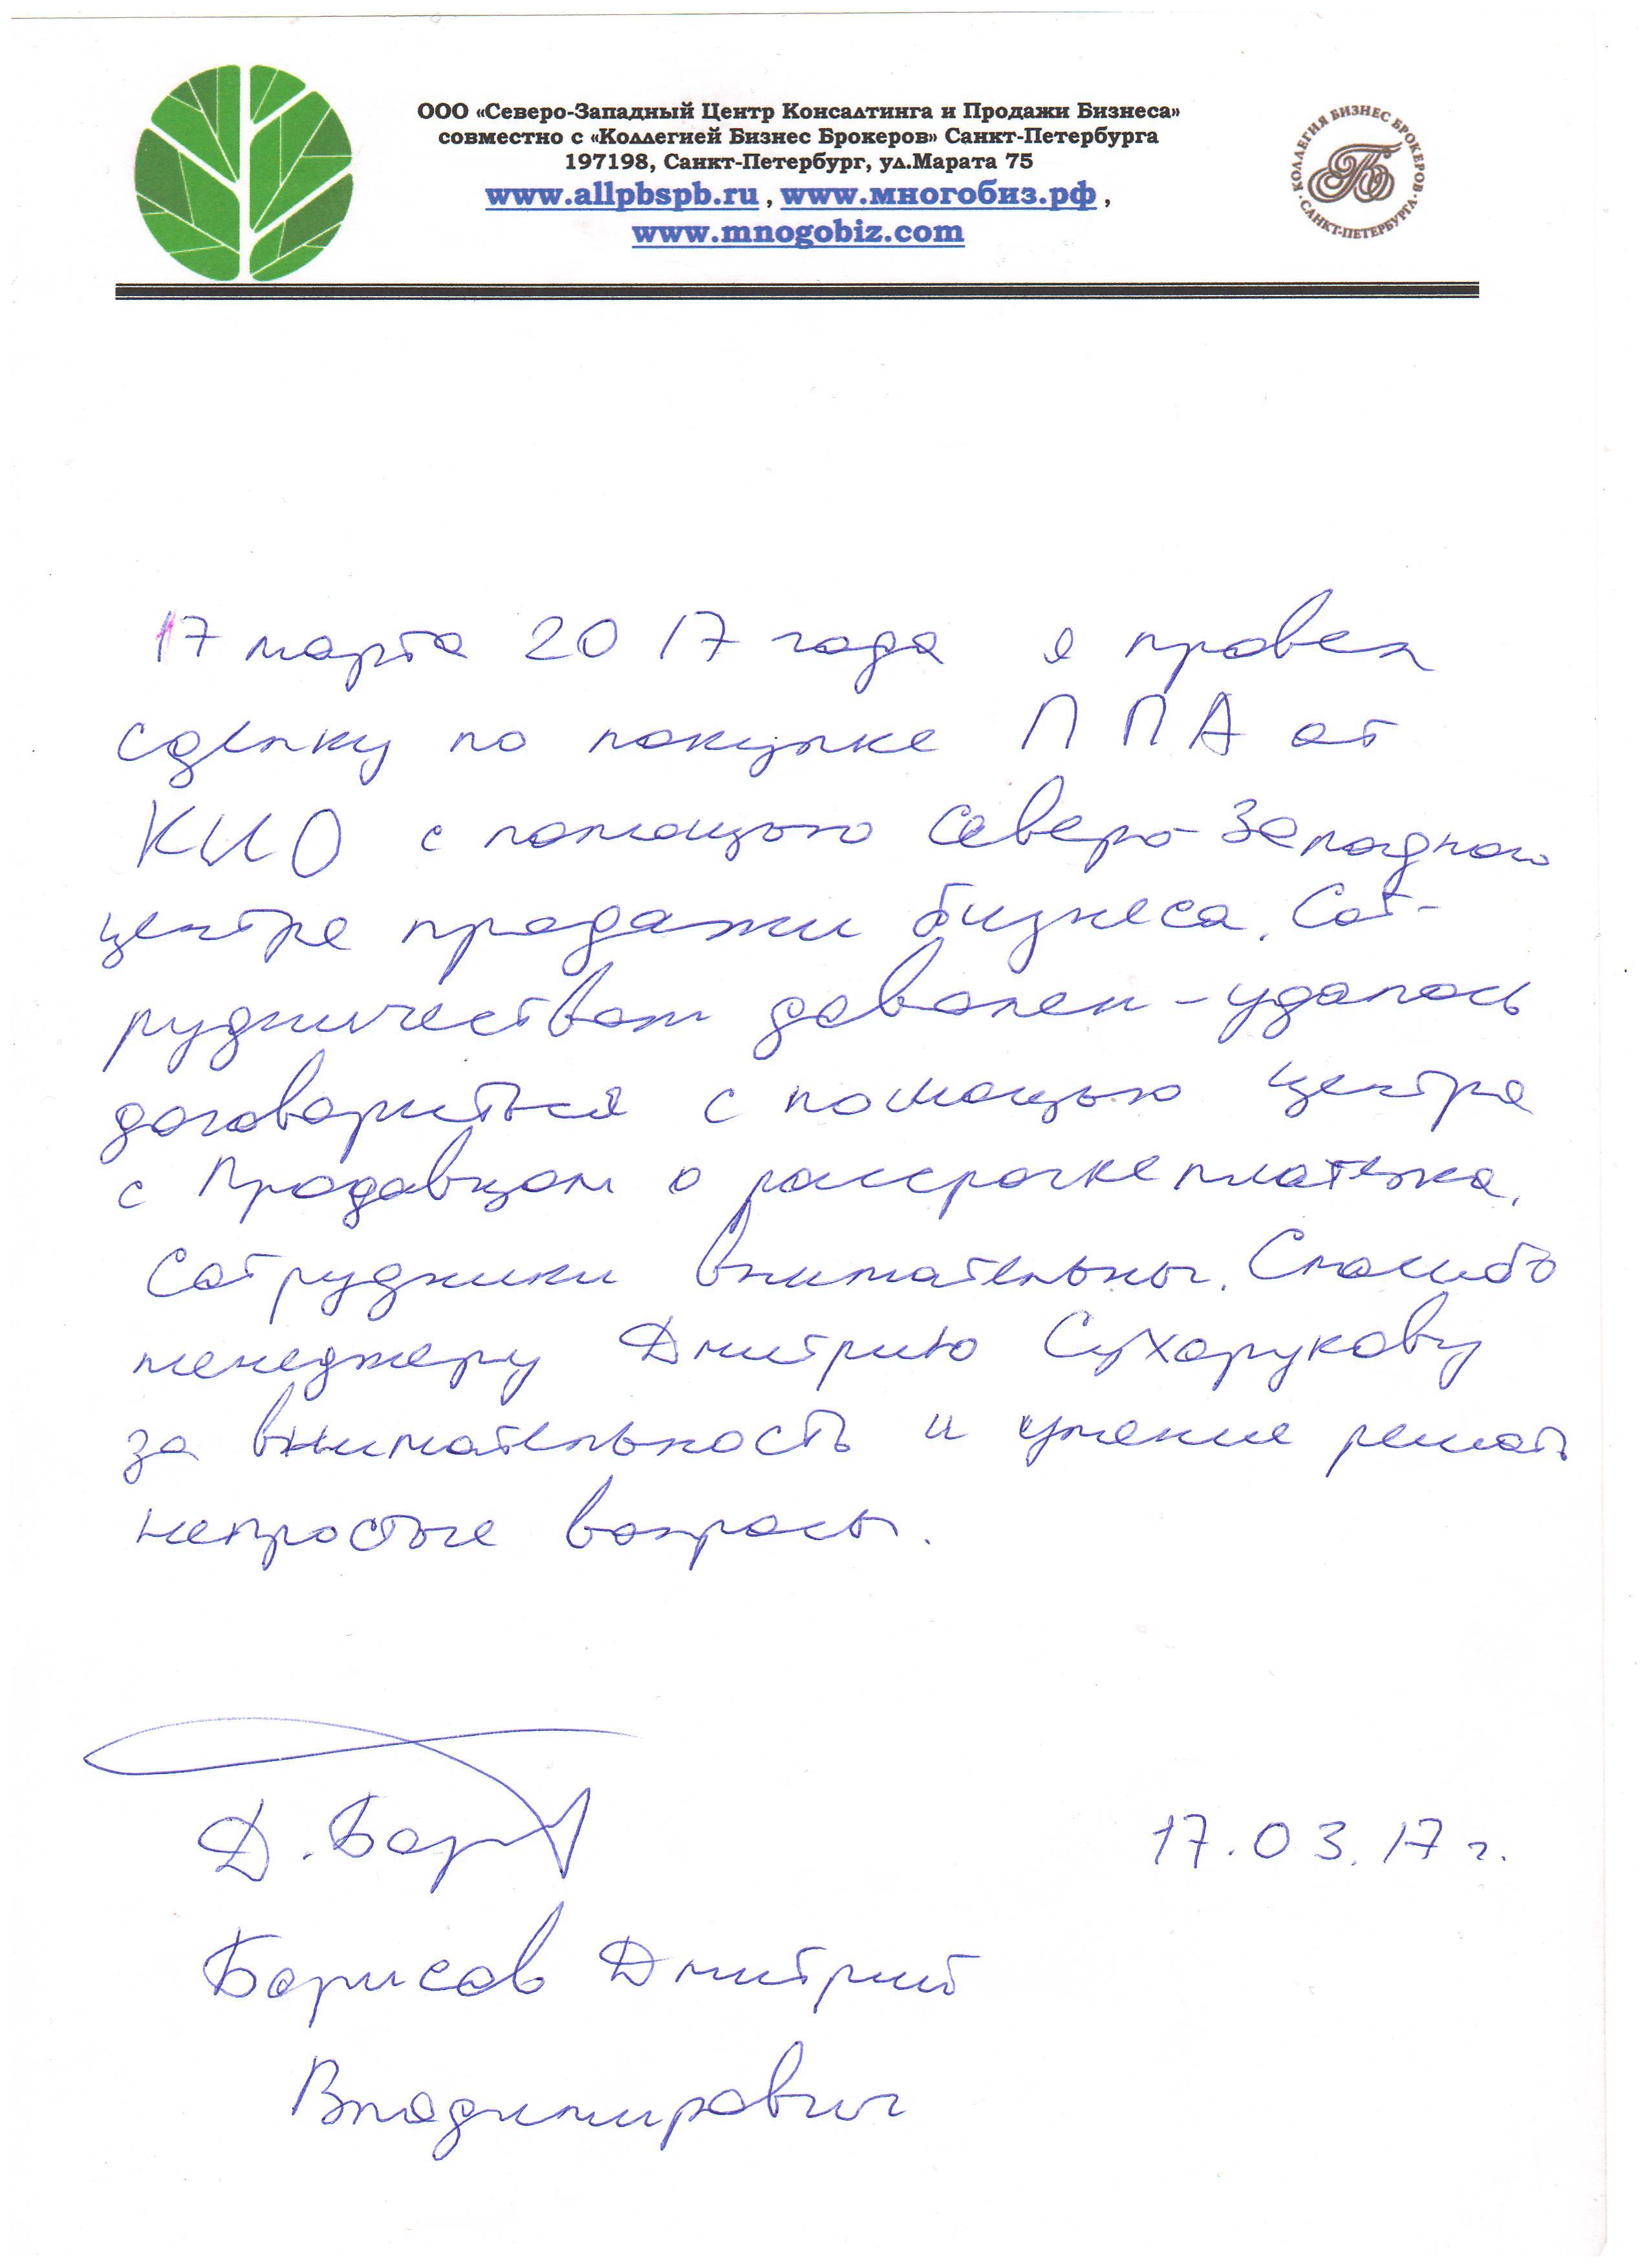 ООО «Северо-Западный Центр Консалтинга и Продажи Бизнеса»
совместно с «Коллегией Бизнес Брокеров» Санкт-Петербурга
197198, Санкт-Петербург, ул.Марата 75
www.allpbspb.ru , www.многобиз.рф ,
www.mnogobiz.com
КОЛЛЕГИЯ БИЗНЕС БРОКЕРОВ
· САНКТ-ПЕТЕРБУРГА ·
17 марта 2017 года я провел
сделку по покупке ППА от
КИО с помощью Северо-Западного
центра продажи бизнеса. Сот-
рудничеством доволен - удалось
договориться с помощью центра
с Продавцом о рассрочке платежа.
Сотрудники внимательны. Спасибо
менеджеру Дмитрию Сухорукову
за внимательность и умение решать
непростые вопросы.
Д. Бор
17.03.17 г.
Борисов Дмитрий
Владимирович